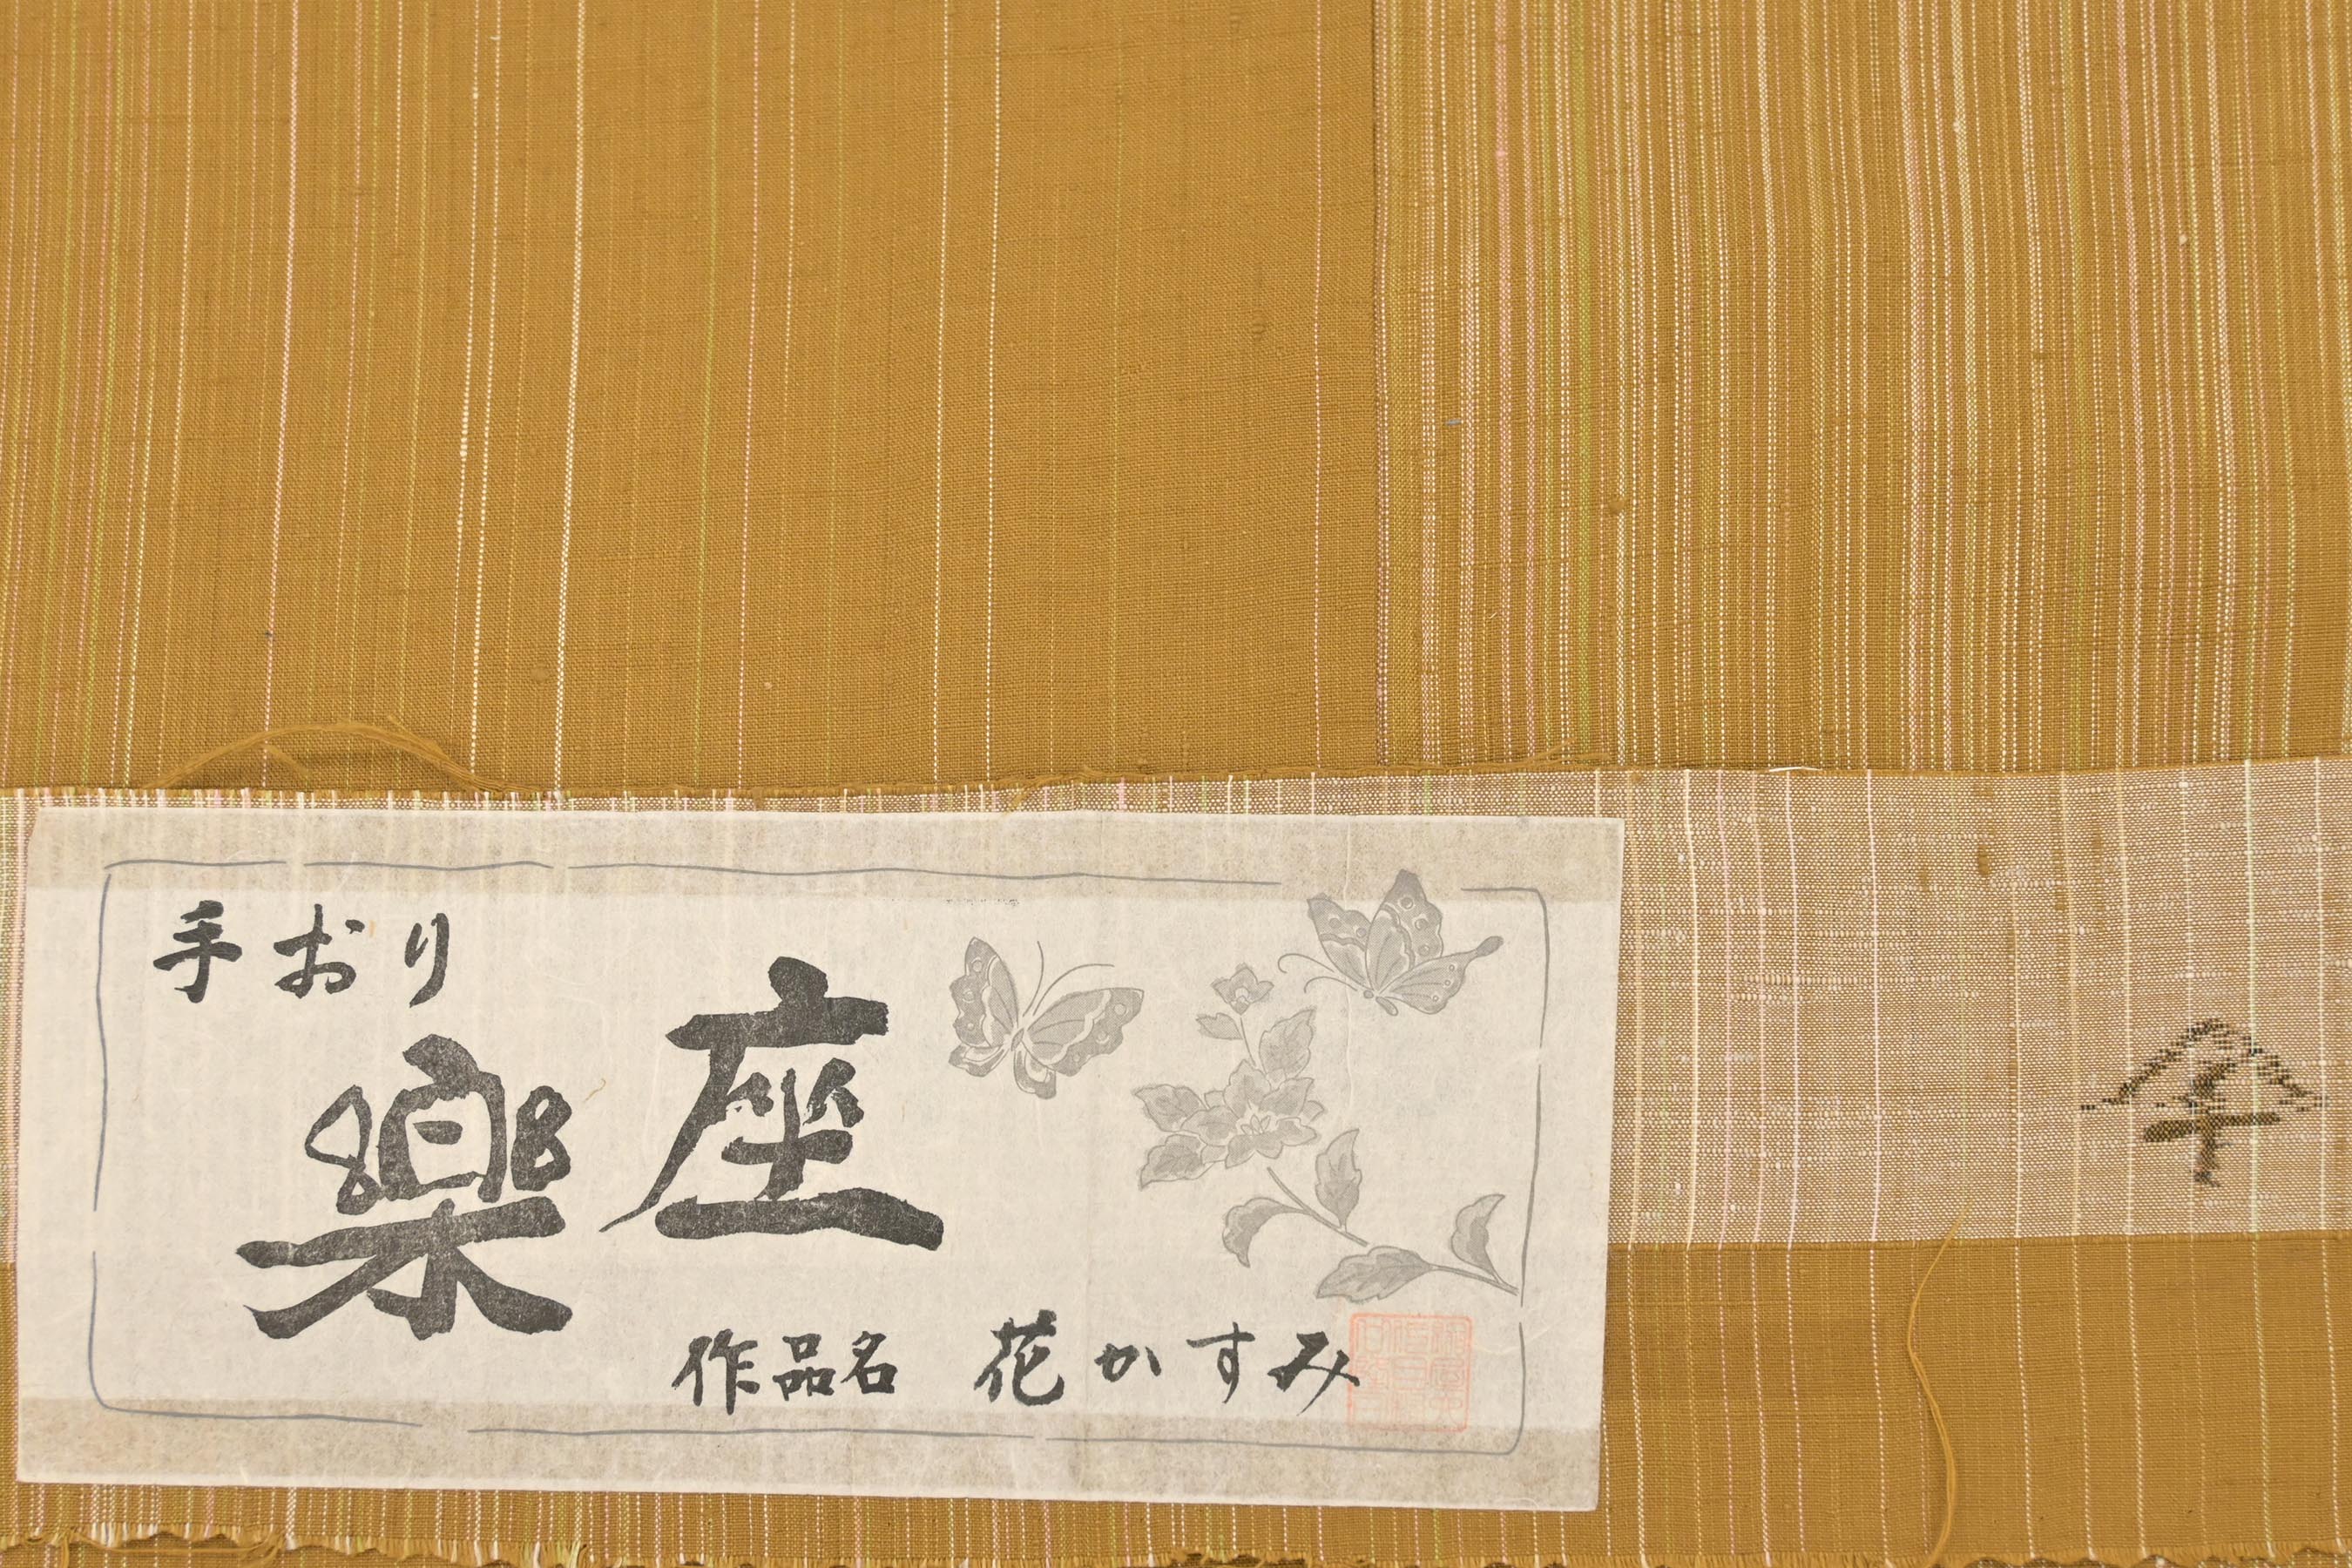 手おり
樂座
作品名 花かすみ